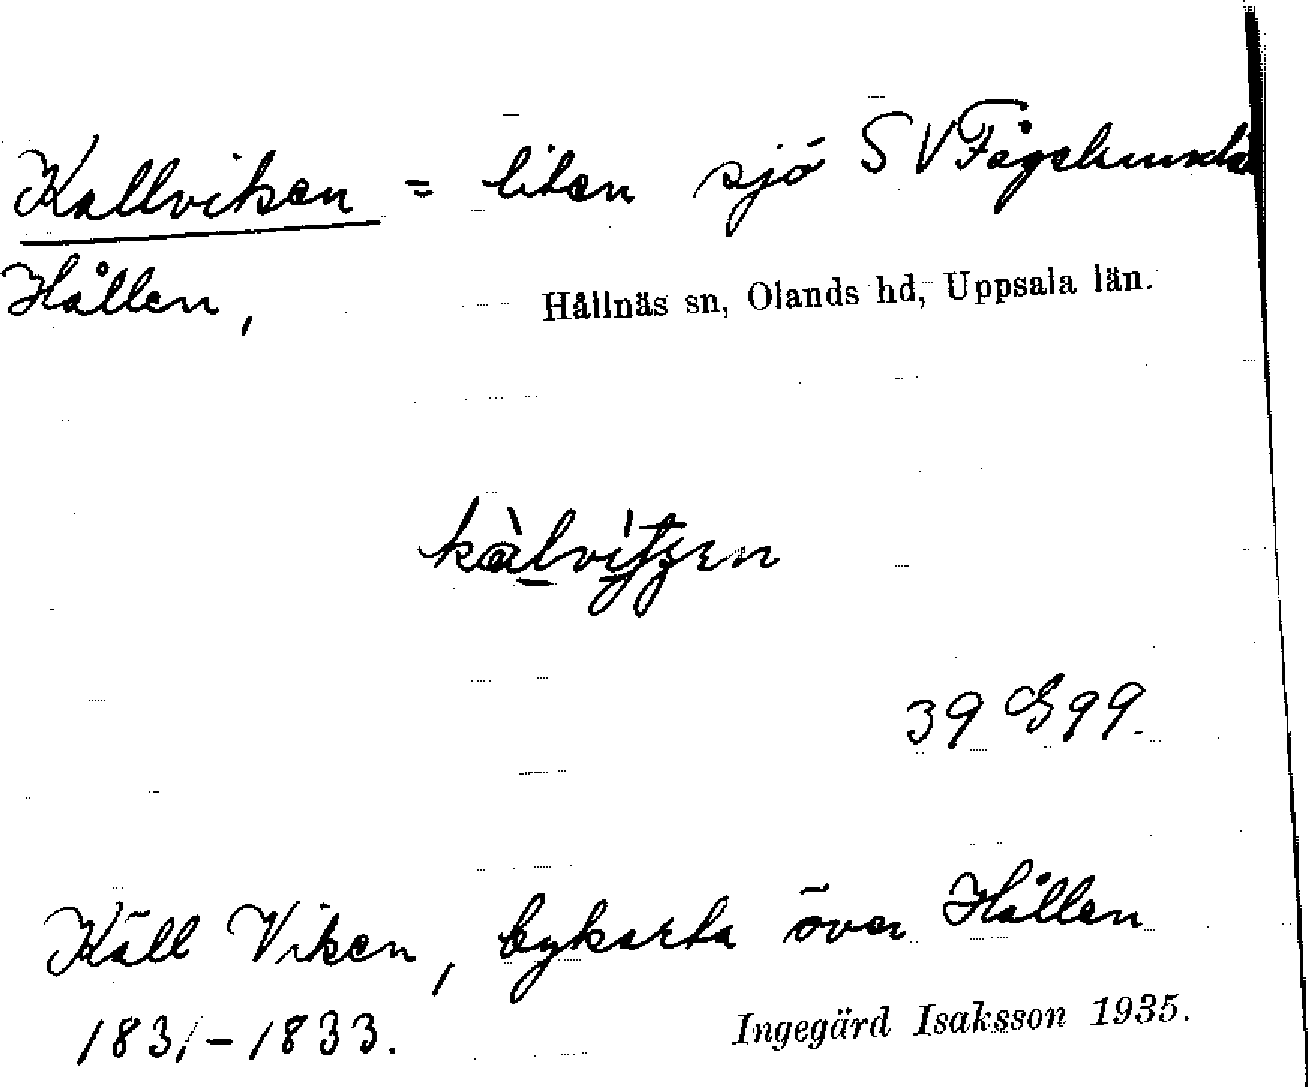 Kallviken = liten sjö SV Fågelsunda
Hållen,
Hållnäs sn, Olands hd, Uppsala län.
39 S 99.
Käll Viken, bykarta över Hållen
1831-1833.
Ingegärd Isaksson 1935.